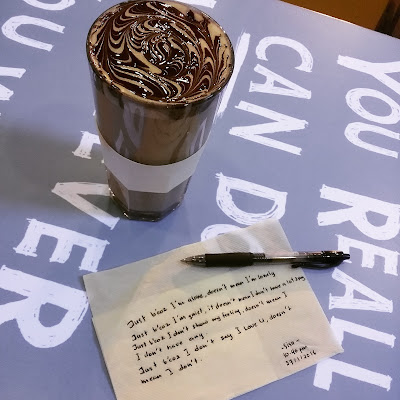 YOU REALL
CAN DO
YOU
EVER
Just b'coz I'm alone, doesn't mean I'm lonely
Just b'coz I'm quiet, it doesn't mean I don't have a lot say
Just b'coz I don't show my feeling, doesn't mean I
I don't have any.
Just b'coz I don't say I love u, doesn't
mean I don't.
10.40 pm
29/11/2016